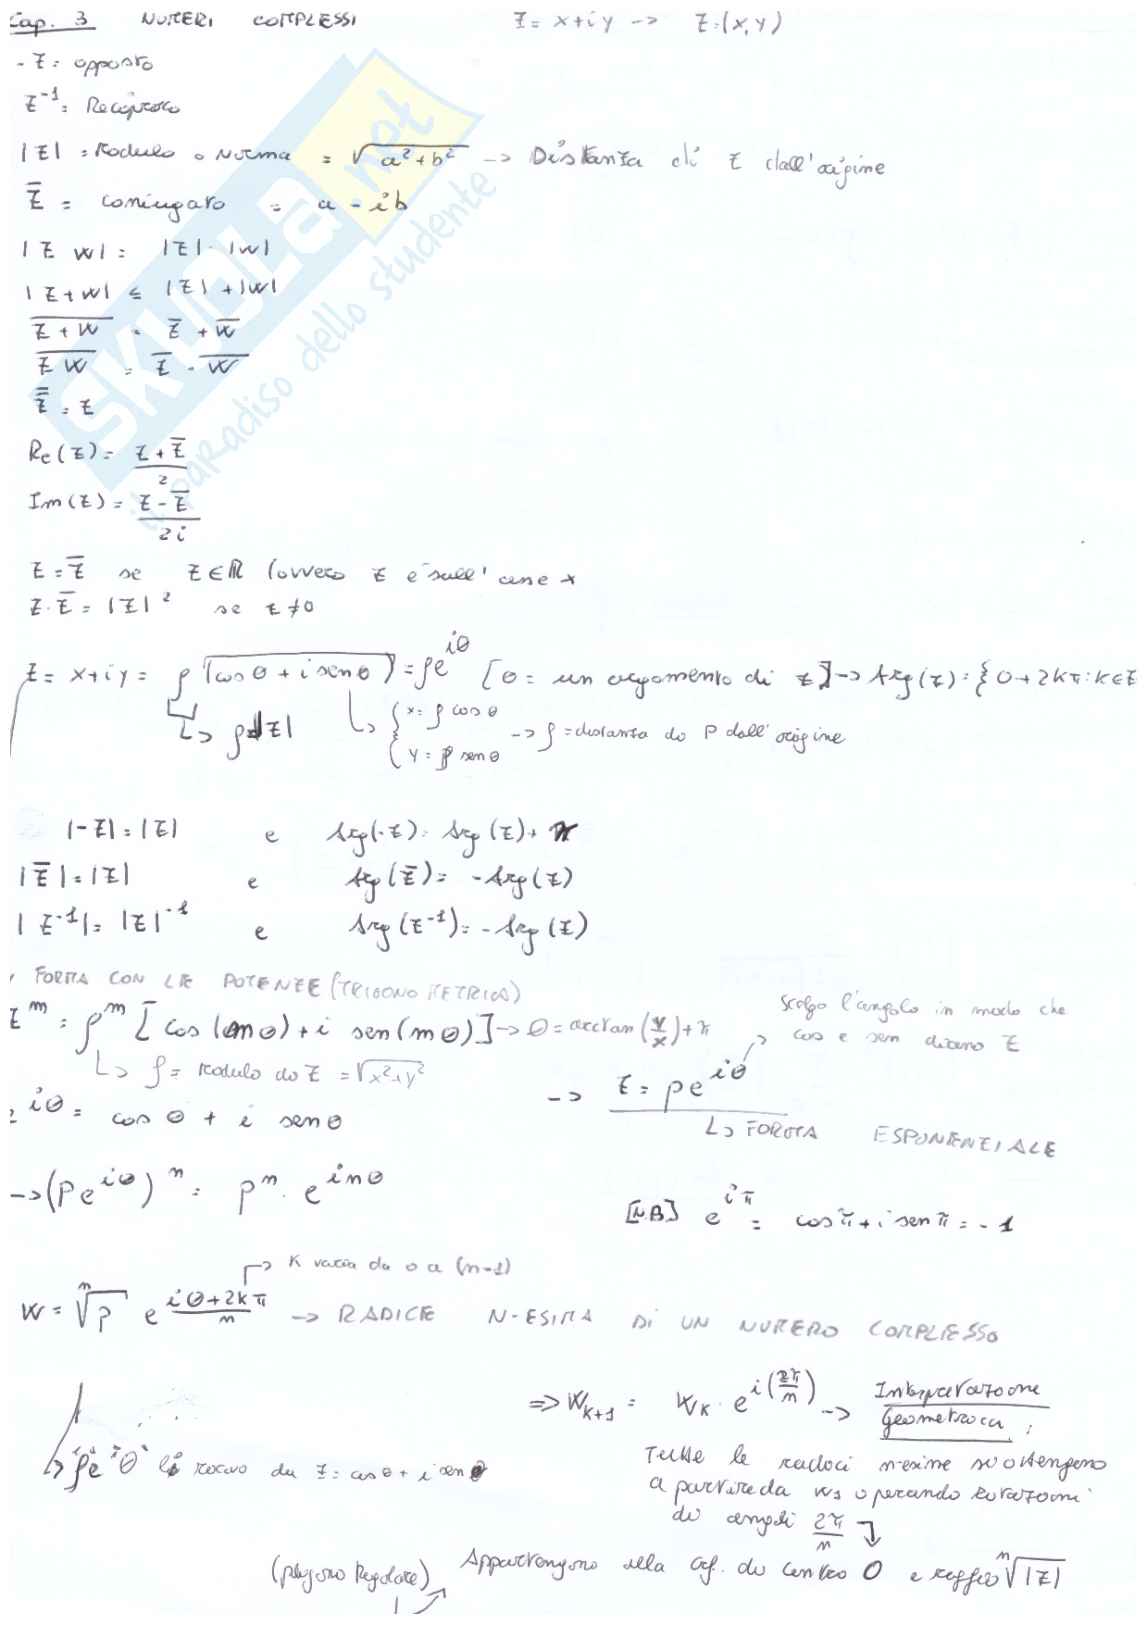 Cap. 3 NUMERI COMPLESSI Z = x+iy -> Z:(x,y)
- Z: opposto
Z⁻¹: Reciproco
|Z| = Modulo o Norma = √(a²+b²) -> Distanza di Z dall'origine
Z̅ = coniugato = a - ib
|Z W| = |Z|·|W|
|Z+W| ≤ |Z|+|W|
Z̅+̅W̅ = Z̅ + W̅
Z̅W̅ = Z̅ · W̅
Z̿ = Z
Re(Z) = (Z+Z̅)/2
Im(Z) = (Z-Z̅)/2i
Z = Z̅ se Z∈ℝ (ovvero Z è sull'asse x
Z·Z̅ = |Z|² se Z≠0
Z = x+iy = ρ(cosθ + i senθ) = ρe^{iθ} [θ = un argomento di Z] -> Arg(Z) = {θ+2kπ: k∈Z
ρ=|Z| {x = ρ cosθ
{y = ρ senθ -> ρ = distanza di P dall'origine
|-Z| = |Z| e Arg(-Z) = Arg(Z)+π
|Z̅| = |Z| e Arg(Z̅) = -Arg(Z)
|Z⁻¹| = |Z|⁻¹ e Arg(Z⁻¹) = -Arg(Z)
FORMA CON LE POTENZE (TRIGONOMETRICA)
Z^m = ρ^m [cos(mθ) + i sen(mθ)] -> θ = arctan(y/x)+π
scelgo l'angolo in modo che
cos e sen diano Z
ρ = modulo di Z = √(x²+y²)
e^{iθ} = cosθ + i senθ
-> Z = ρe^{iθ}
FORMA ESPONENZIALE
-> (ρe^{iθ})^n = ρ^n · e^{inθ}
[N.B] e^{iπ} = cosπ + i senπ = -1
K varia da 0 a (n-1)
W = ⁿ√ρ e^{i(θ+2kπ)/n} -> RADICE N-ESIMA DI UN NUMERO COMPLESSO
=> W_{k+1} = W_k · e^{i(2π/n)} -> Interpretazione
Geometrica:
ρe^{iθ} lo ricavo da Z = cosθ + i senθ
Tutte le radici n-esime si ottengono
a partire da w₁ operando rotazioni
di angoli 2π/n
(poligono Regolare) Appartengono alla crf. di centro O e raggio ⁿ√|Z|
SKUOLA.net
il paradiso dello studente